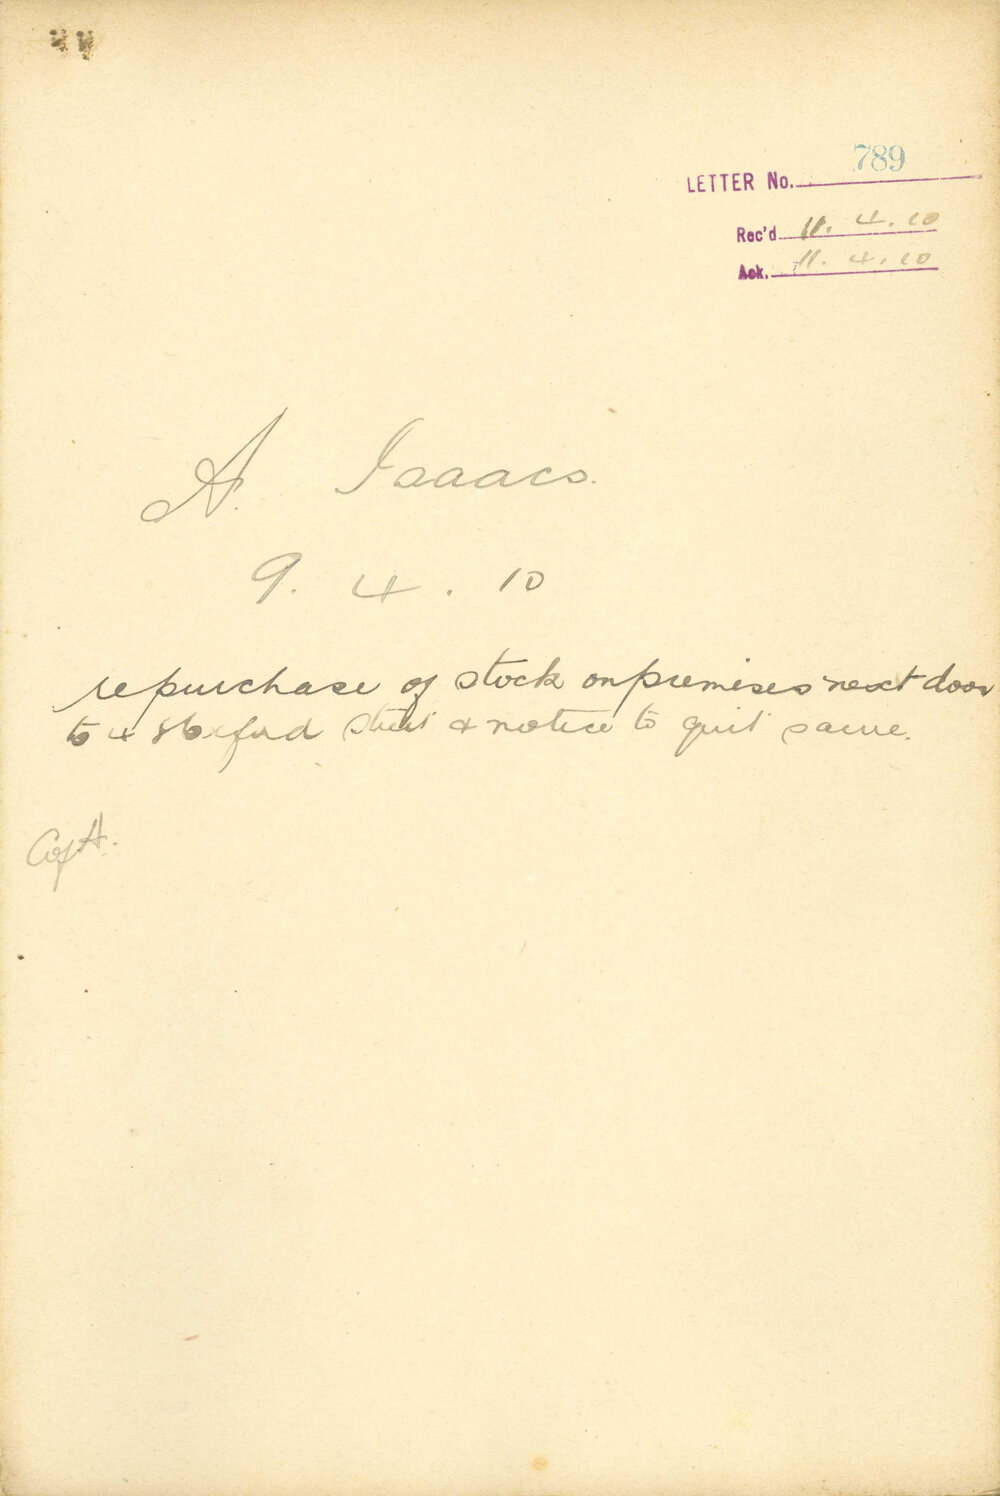 789
LETTER No.
Rec'd 11. 4. 10
Ack. 11. 4. 10
A. Isaacs.
9. 4. 10
re purchase of stock on premises next door
to 48 Oxford Street & notice to quit same.